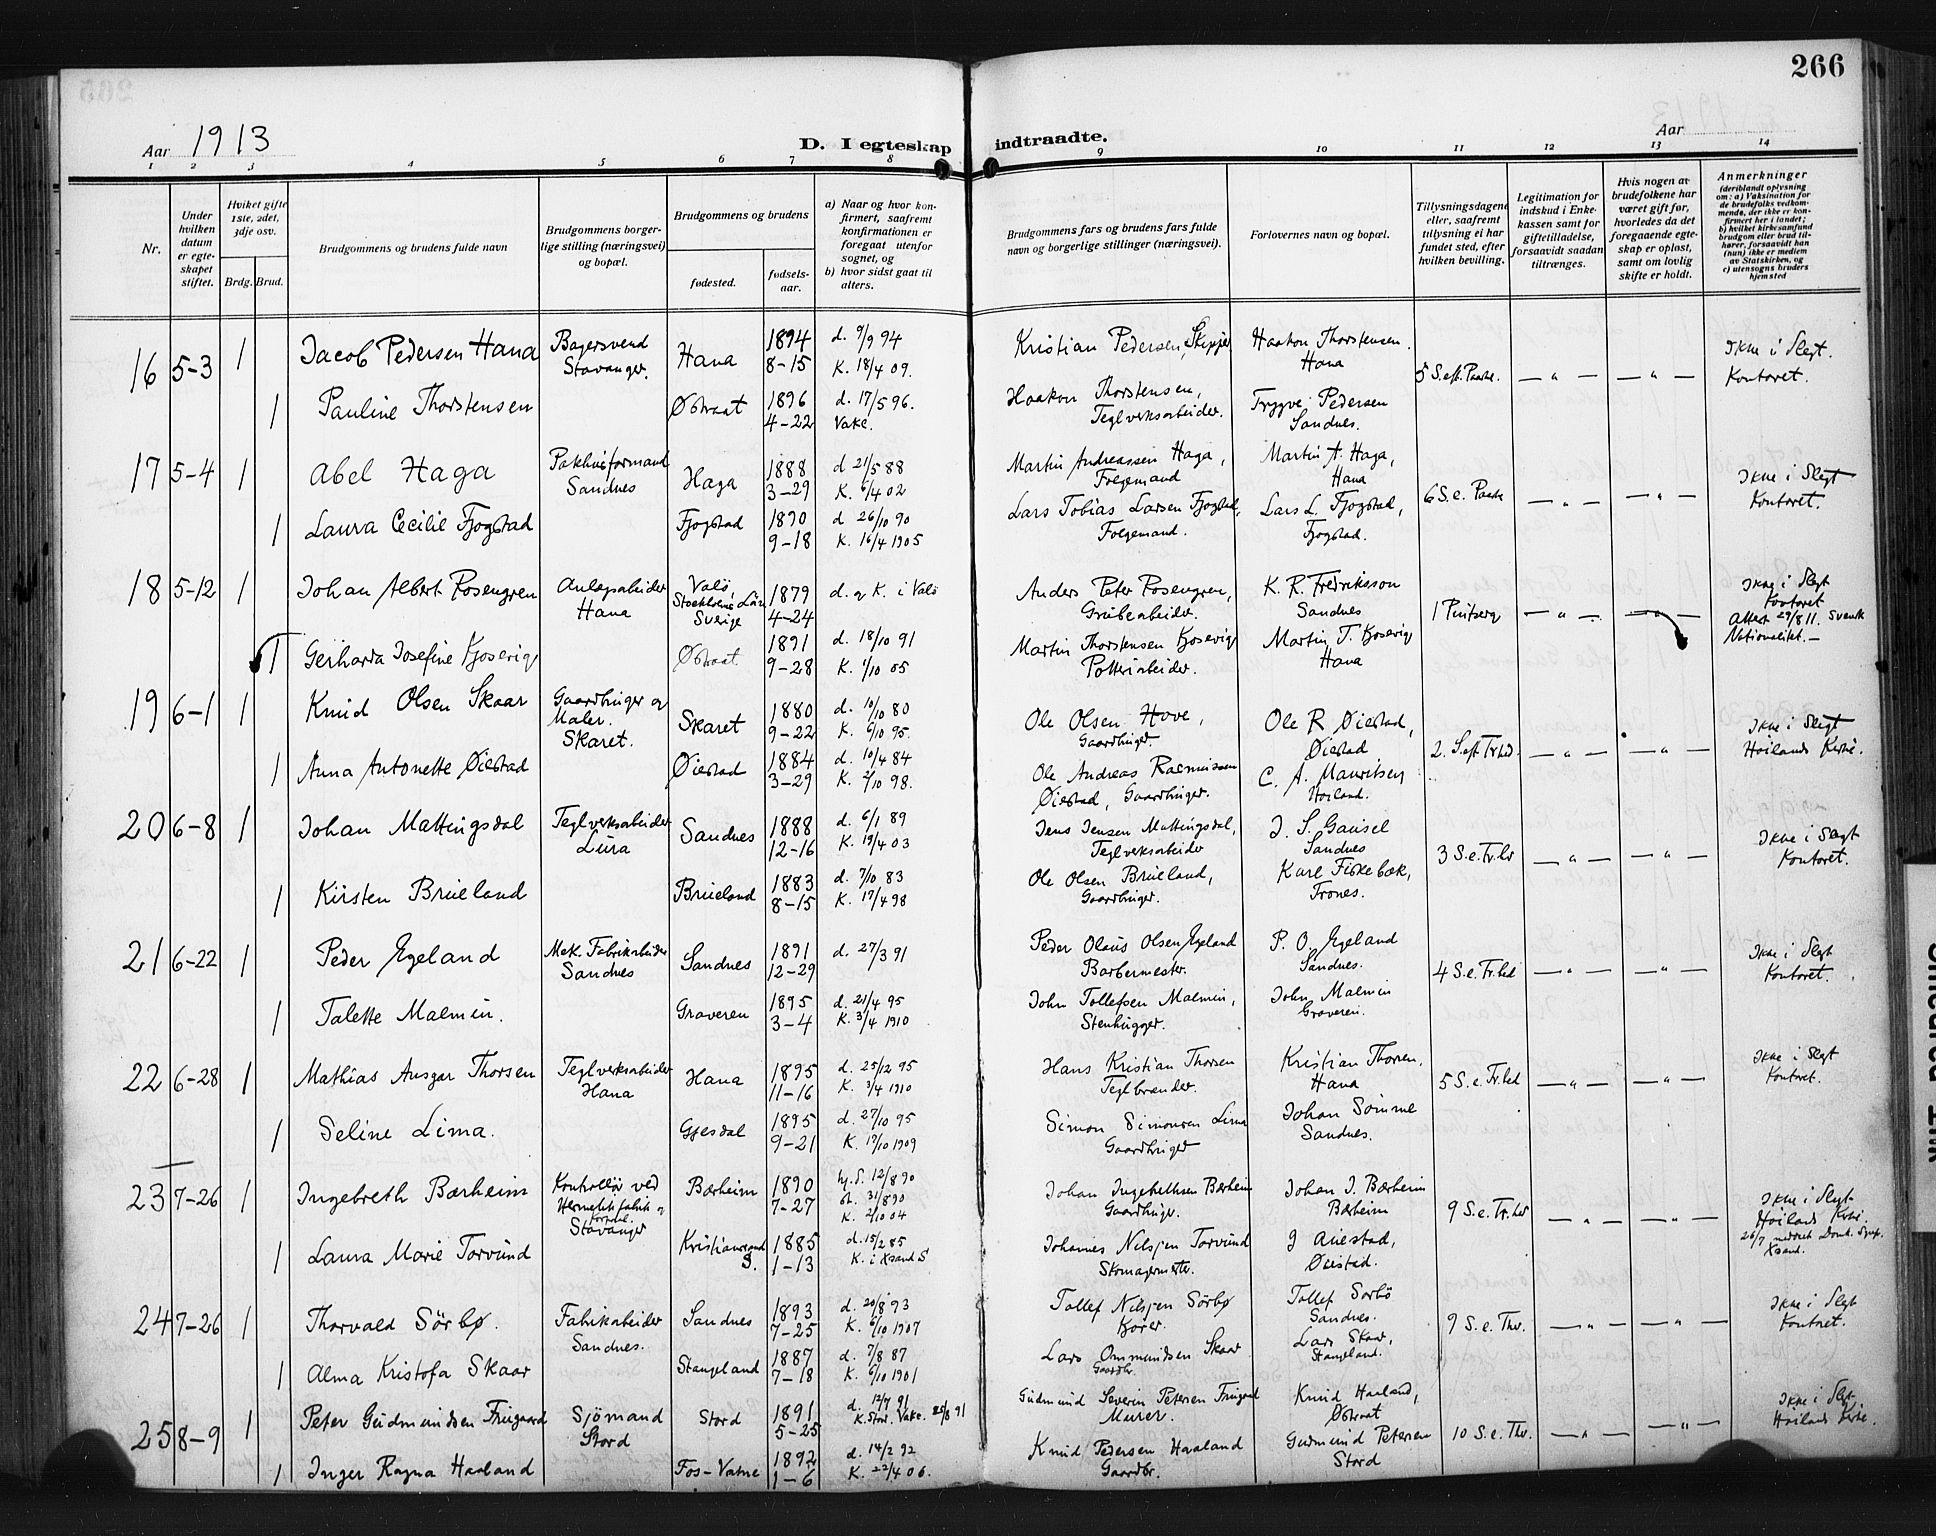 266
Aar 1913
D. I egteskap indtraadte.
Aar
1 2 3 4 5 6 7 8 9 10 11 12 13 14
Nr.
Under hvilken datum er egteskapet stiftet.
Hviket gifte 1ste, 2det, 3dje osv.
Brdg. Brud.
Brudgommens og brudens fulde navn
Brudgommens borgerlige stilling (næringsvei) og bopæl.
Brudgommens og brudens
fødested.
fødselsaar.
a) Naar og hvor konfirmert, saafremt konfirmationen er foregaat utenfor sognet, og
b) hvor sidst gaat til alters.
Brudgommens fars og brudens fars fulde navn og borgerlige stillinger (næringsvei).
Forlovernes navn og bopæl.
Tillysningsdagene eller, saafremt tillysning ei har fundet sted, efter hvilken bevilling.
Legitimation for indskud i Enkekassen samt for giftetilladelse, forsaavidt saadan tiltrænges.
Hvis nogen av brudefolkene har været gift før, hvorledes da det foregaaende egteskap er opløst, samt om lovlig skifte er holdt.
Anmerkninger (deriblandt oplysning om: a) Vaksination for de brudefolks vedkommende, der ikke er konfirmert her i landet; b) hvilket kirkesamfund brudgom eller brud tilhører, forsaavidt han (hun) ikke er medlem av Statskirken, og c) utensogns bruders hjemsted
16 5-3 1 Jacob Pedersen Hana Bagersvend Stavanger. Hana 1894 8-15 d. 9/9 94 K. 18/4 09. Kristian Pedersen, Skipper Haakon Thorstensen. Hana 5 S. eft. Paaske. — " — — " — Ikke i Slegt. Kontoret.
1 Pauline Thorstensen Østraat 1896 4-22 d. 17/5 96. Vake. Haakon Thorstensen, Teglverksarbeider. Trygve Pedersen Sandnes.
17 5-4 1 Abel Haga Pakhusformand Sandnes Haga 1888 3-29 d 21/5 88 K. 6/4 02 Martin Andreassen Haga, Folgemand Martin A. Haga, Hana 6 S. e. Paaske — " — — " — Ikke i Slegt Kontoret.
1 Laura Cecilie Fjogstad Fjogstad 1890 9-18 d 26/10 90 K. 16/4 1905 Lars Tobias Larsen Fjogstad, Folgemand. Lars L. Fjogstad, Fjogstad.
18 5-12 1 Johan Albert Rosengren Anlegsarbeider Hana Valö, Stockholms Län Sverige 1879 4-24 d. og K. i Valö Anders Peter Rosengren, Grubearbeider. K. R. Fredriksson Sandnes 1 Pintseg — " — — " — Ikke i Slegt Kontoret Attest 29/8 11. Svensk Nationalitet. —
1 Gerharda Josefine Kjosevig Østraat. 1891 9-28 d. 18/10 91 K. 1/10 05 Martin Thorstensen Kjosevig Potteriarbeider. Martin T. Kjosevig Hana
19 6-1 1 Knud Olsen Skaar Gaardbruger og Maler. Skaret. Skaret 1880 9-22 d. 10/10 80 K. 6/10 95. Ole Olsen Hove, Gaardbruger. Ole R Øiestad, Øiestad 2. S. eft Tr.hed. — " — — " — Ikke i Slegt Høilands Kirke.
1 Anna Antonette Øiestad Øiestad 1884 3-29 d. 10/4 84 K. 2/10 98. Ole Andreas Rasmussen Øiestad, Gaardbruger. C. A. Mauritsen Høiland.
20 6-8 1 Johan Mattingsdal Teglverksarbeider Lura Sandnes 1888 12-16 d. 6/1 89 K. 19/4 03 Jens Jensen Mattingsdal, Teglverksarbeider J. S. Gausel Sandnes 3 S. e. Tr.hd — " — — " — Ikke i Slegt Kontoret.
1 Kirsten Brueland Brueland 1883 8-15 d. 7/10 83 K. 17/4 98 Ole Olsen Brueland, Gaardbruger. Karl Fiskebæk, Trones.
21 6-22 1 Peder Egeland Mek. Fabrikarbeider Sandnes Sandnes 1891 12-29 d. 27/3 91 Peder Olaus Olsen Egeland Barbermester. P. O. Egeland Sandnes. 4 S. e. Tr.hed — " — — " — Ikke i Slegt Kontoret.
1 Talette Malmin. Graveren 1895 3-4 d. 21/4 95 K. 3/4 1910 John Tollefsen Malmin, Stenhugger. John Malmin Graveren.
22 6-28 1 Mathias Ansgar Thorsen Teglverksarbeider Hana Hana 1895 11-16 d. 25/12 95 K. 3/4 1910 Hans Kristian Thorsen Teglbrænder. Kristian Thorsen, Hana 5 S. e. Tr.hed — " — — " — Ikke i Slegt Kontoret.
1 Seline Lima. Gjesdal 1895 9-21 d. 27/10 95 K. 17/10 1909 Simon Simonsen Lima Gaardbruger Johan Sømme Sandnes.
23 7-26 1 Ingebreth Bærheim Kontrollør ved Hermetikfabrik Stavanger Bærheim 1890 7-27 hj.d. 12/8 90 st. 31/8 90 K. 2/10 04 Johan Ingebrethsen Bærheim Gaardbruger. Johan I. Bærheim Bærheim 9 S. e. Tr.hd — " — — " — Ikke i Slegt Høilands Kirke.
1 Laura Marie Torvund Kristianssand S. 1885 1-13 d. 15/2 85 K. i Xsand S Johannes Nilsen Torvund Skomagermester. J Auestad, Øiestad.
24 7-26 1 Thorvald Sörbø. Fabrikarbeider Sandnes. Sandnes 1893 7-25 d. 20/8 93 K. 6/10 1907 Tollef Nilsen Sörbø Kjører. Tollef Sörbö Sandnes. 9 S. e. Thr. — " — — " — Ikke i Slegt Kontoret.
1 Alma Kristofa Skaar Stangeland 1887 7-18 d. 7/8 87 K. 6/10 1901 Lars Ommundsen Skaar Gaardbr. Lars Skaar, Stangeland.
25 8-9 1 Peter Gudmundsen Frugaard Sjömand Stord Stord 1891 5-25 d. 12/7 91 K. Stord. Vake. Gudmund Severin Petersen Frugaard Murer. Knud Haaland, Østraat 10 S. e. Thr. — " — — " — Ikke i Slegt Høilands Kirke.
1 Inger Ragna Haaland Fos-Vatne 1892 1-6 d. 14/2 92 K. 22/4 06. Knud Pedersen Haaland Gaardbr. Gudmund Petersen Stord